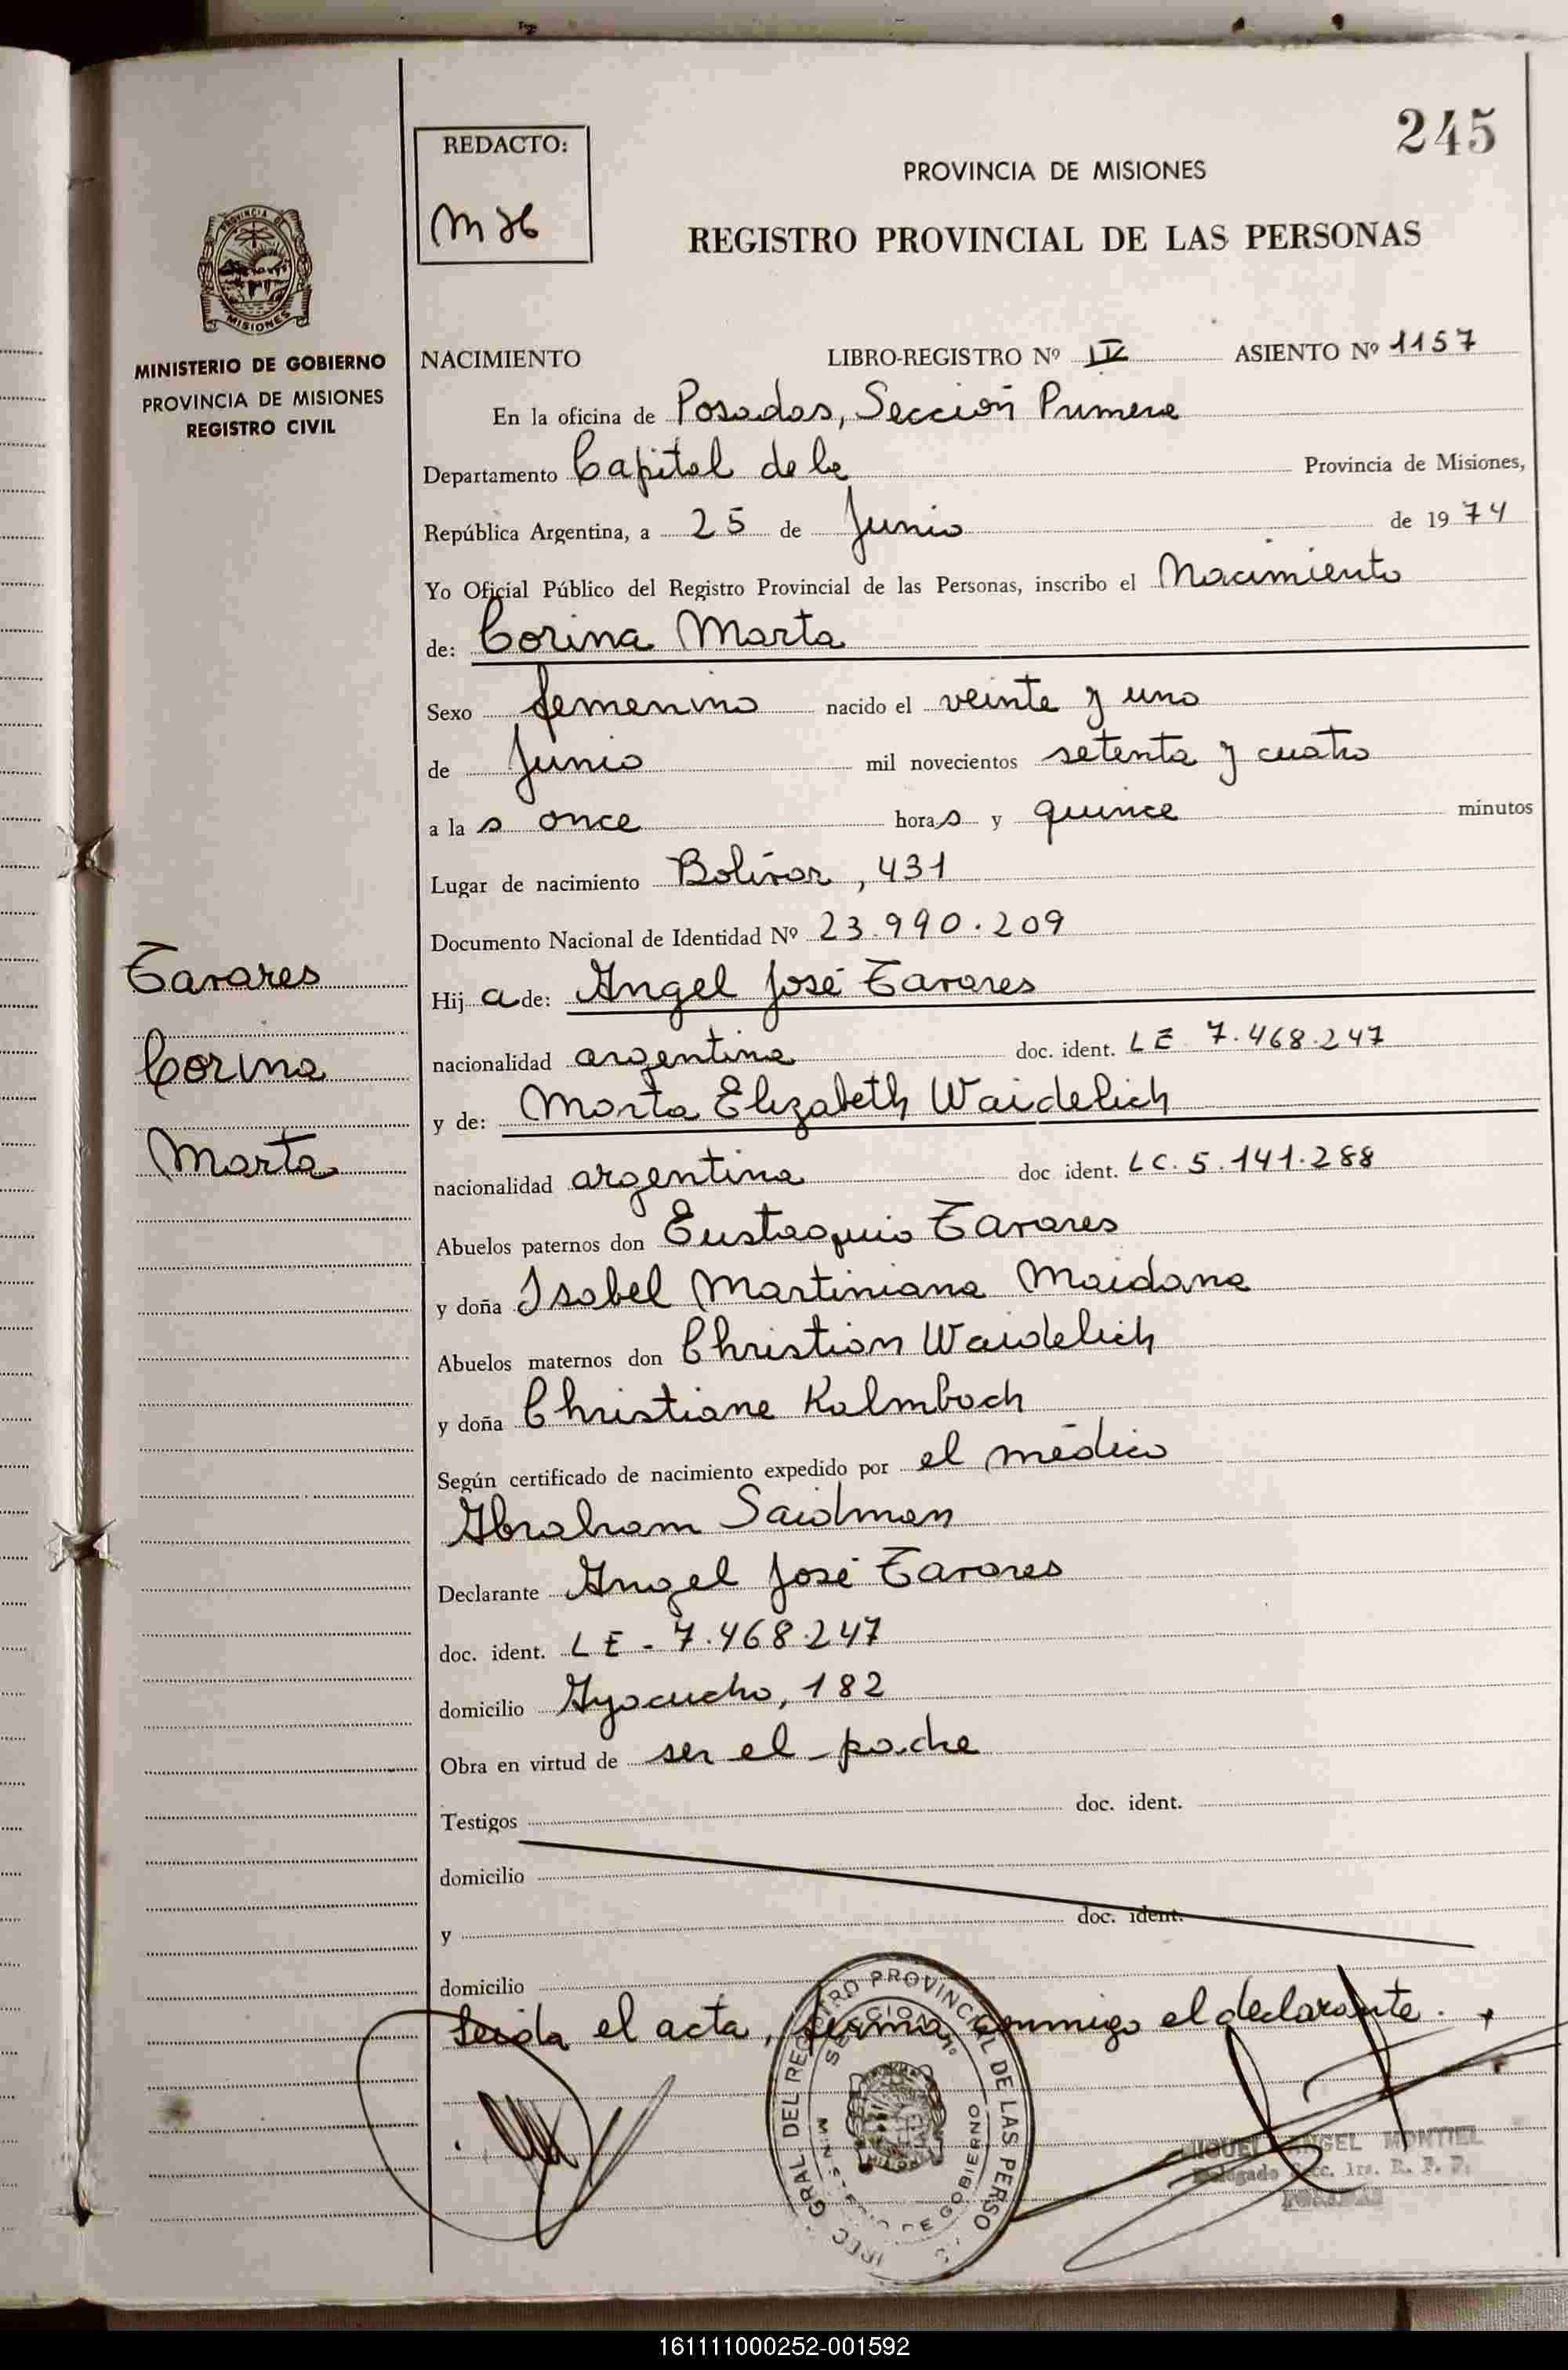 245
REDACTO:
PROVINCIA DE MISIONES
REGISTRO PROVINCIAL DE LAS PERSONAS
PROVINCIA DE
MISIONES
MINISTERIO DE GOBIERNO
PROVINCIA DE MISIONES
REGISTRO CIVIL
NACIMIENTO LIBRO-REGISTRO Nº IV ASIENTO Nº 1157
En la oficina de Posadas, Sección Primera
Departamento Capital de la Provincia de Misiones,
República Argentina, a 25 de Junio de 1974
Yo Oficial Público del Registro Provincial de las Personas, inscribo el Nacimiento
de: Corina Marta
Sexo femenino nacido el veinte y uno
de Junio mil novecientos setenta y cuatro
a la s once hora s y quince minutos
Lugar de nacimiento Bolívar, 431
Documento Nacional de Identidad Nº 23.990.209
Tavares
Corina
Marta
Hij a de: Angel José Tavares
nacionalidad argentina doc. ident. LE 7.468.247
y de: Marta Elizabeth Waidelich
nacionalidad argentina doc ident. LC. 5.141.288
Abuelos paternos don Eustaquio Tavares
y doña Isabel Martiniana Maidana
Abuelos maternos don Christian Waidelich
y doña Christiane Kalmbach
Según certificado de nacimiento expedido por el médico
Abraham Saidman
Declarante Angel José Tavares
doc. ident. LE - 7.468.247
domicilio Ayacucho, 182
Obra en virtud de ser el padre
Testigos doc. ident.
domicilio
y doc. ident.
domicilio
Leída el acta, firma conmigo el declarante.
GRAL. DEL REGISTRO PROVINCIAL DE LAS PERSO
SECCION 1º
MINISTERIO DE GOBIERNO
MIGUEL ANGEL MONTIEL
Delegado Secc. 1ra. R. P. P.
POSADAS
161111000252-001592